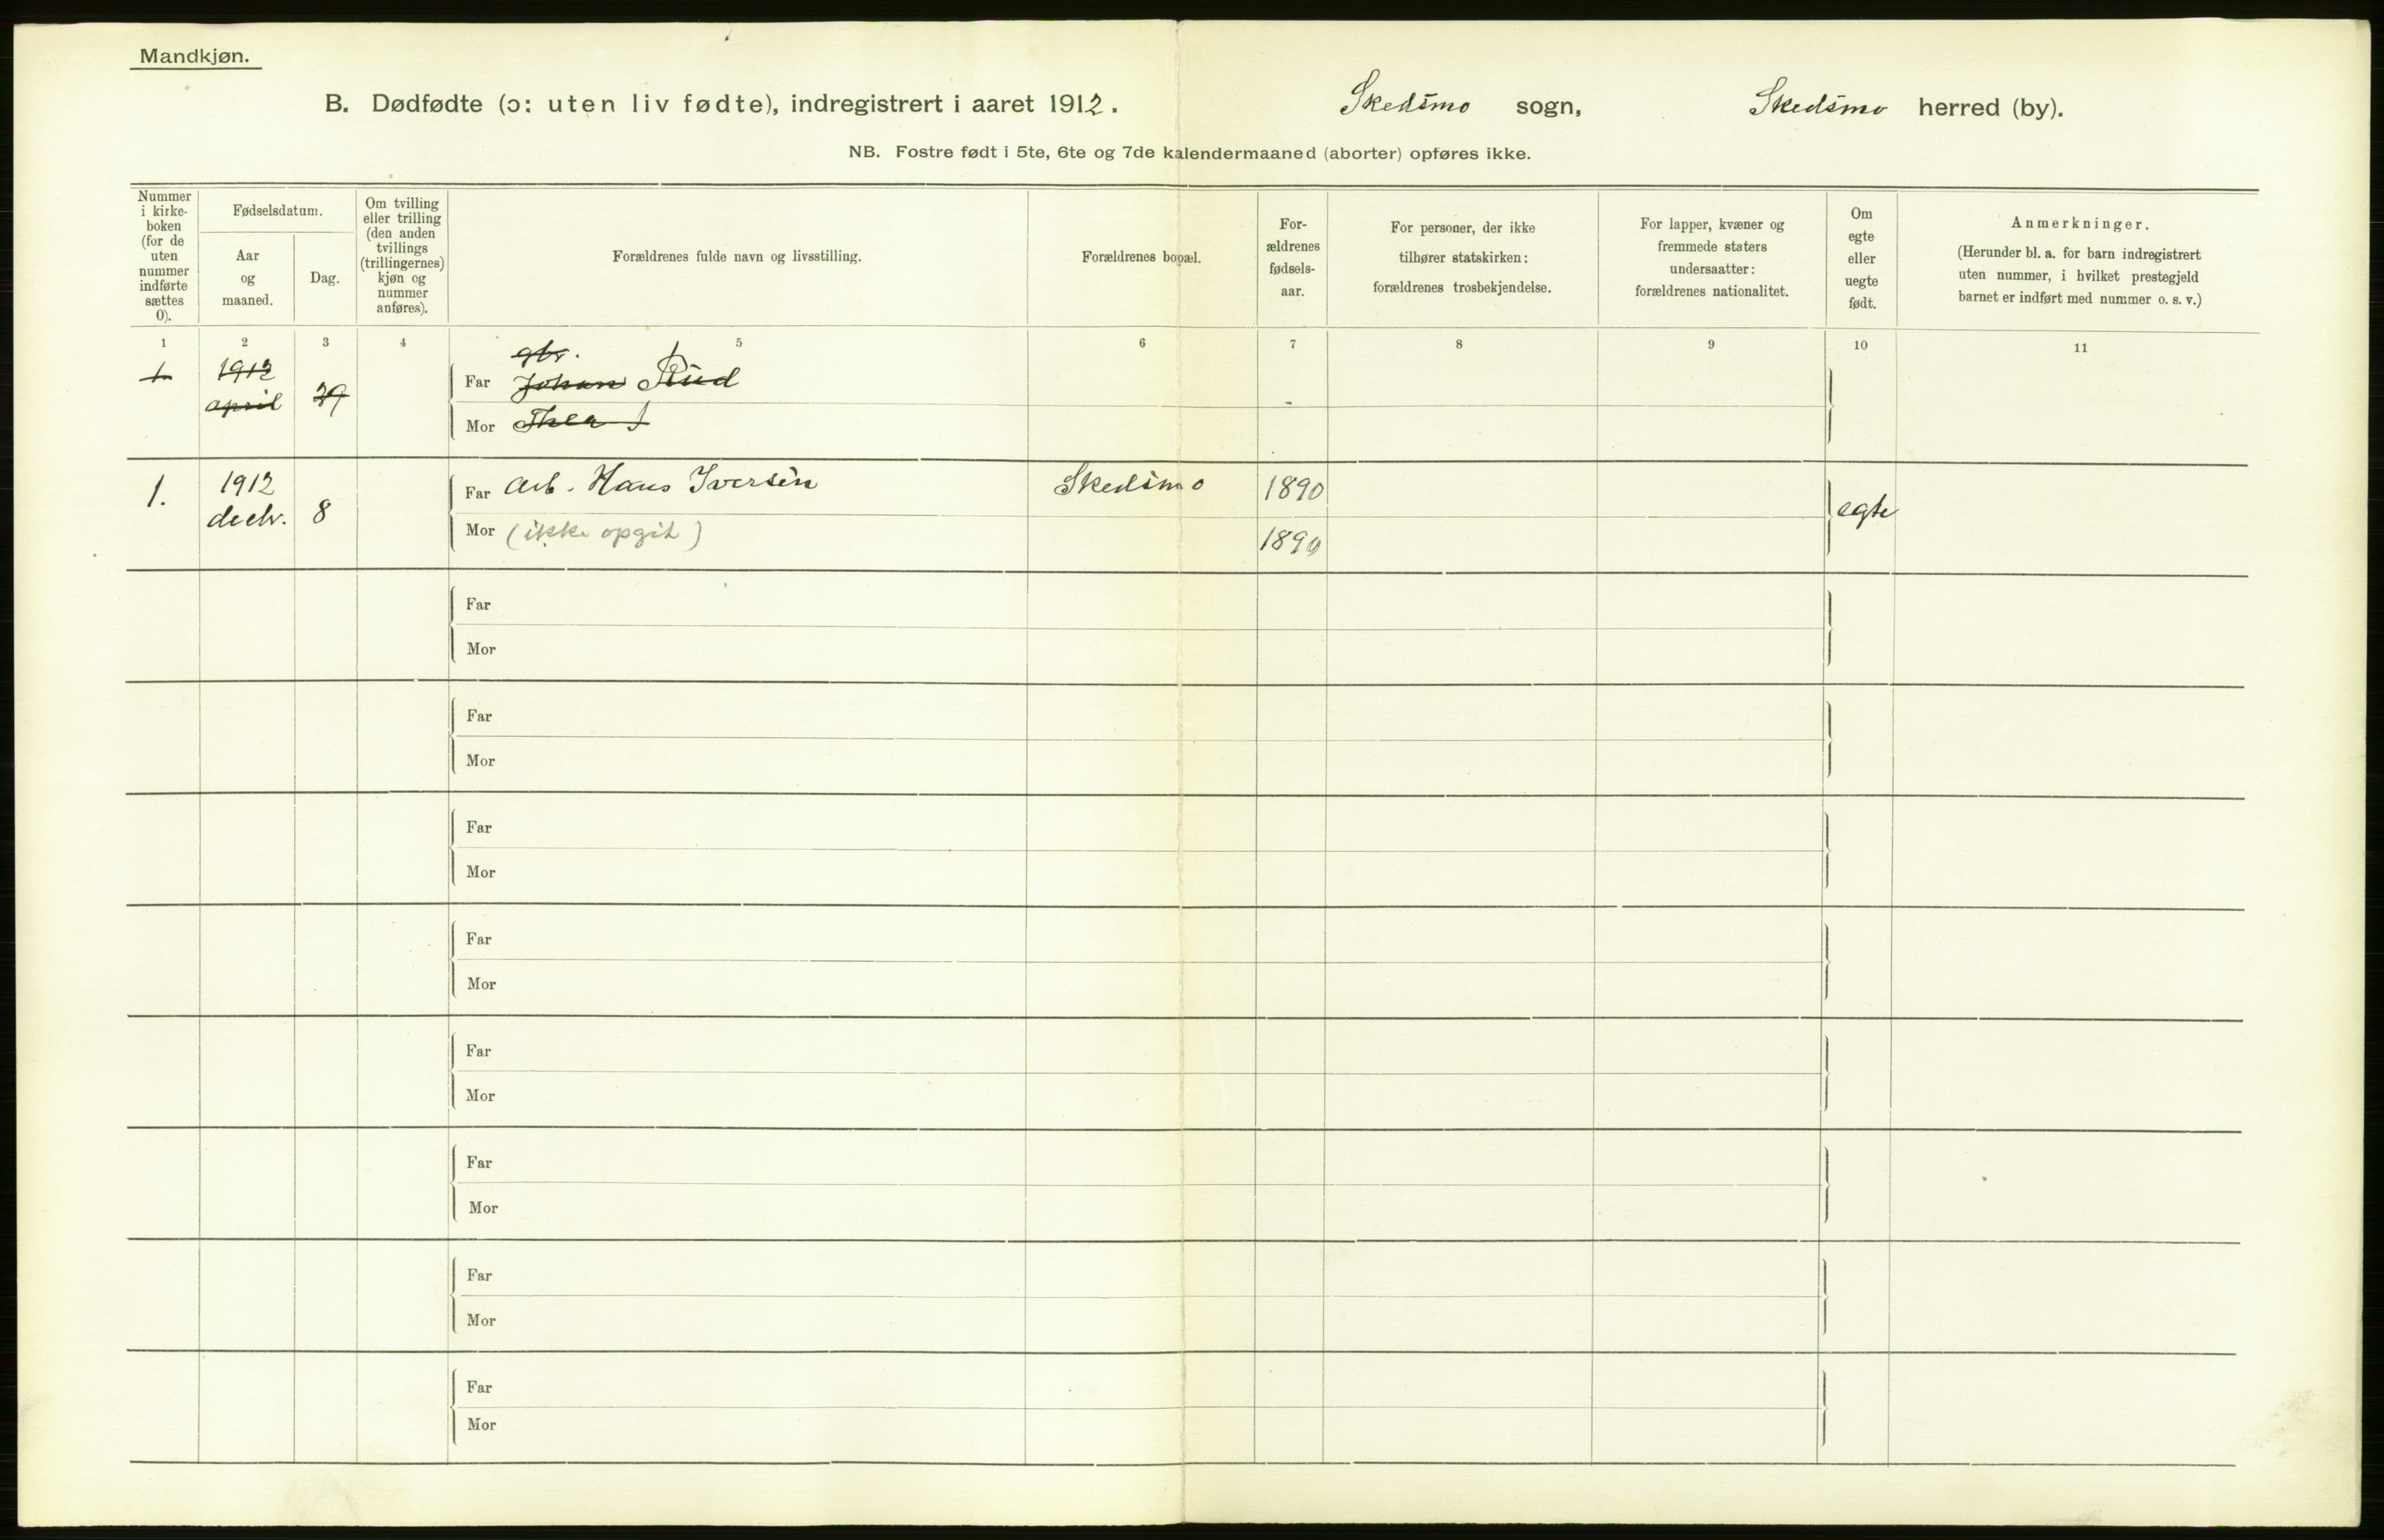 Mandkjøn.
B. Dødfødte (ɔ: uten liv fødte), indregistrert i aaret 1912. Skedsmo sogn, Skedsmo herred (by).
NB. Fostre født i 5te, 6te og 7de kalendermaaned (aborter) opføres ikke.
Nummer
i kirke-
boken
(for de
uten
nummer
indførte
sættes
0).
Fødselsdatum.
Aar
og
maaned.
Dag.
Om tvilling
eller trilling
(den anden
tvillings
(trillingernes)
kjøn og
nummer
anføres).
Forældrenes fulde navn og livsstilling.
Forældrenes bopæl.
For-
ældrenes
fødsels-
aar.
For personer, der ikke
tilhører statskirken:
forældrenes trosbekjendelse.
For lapper, kvæner og
fremmede staters
undersaatter:
forældrenes nationalitet.
Om
egte
eller
uegte
født.
Anmerkninger.
(Herunder bl. a. for barn indregistrert
uten nummer, i hvilket prestegjeld
barnet er indført med nummer o. s. v.)
1 2 3 4 5 6 7 8 9 10 11
1. 1912
april 29
gbr.
Far Johan Rud
Mor Thea
1. 1912
decbr. 8
Far Arb. Hans Iversen Skedsmo 1890
Mor (ikke opgit) 1890
egte
Far
Mor
Far
Mor
Far
Mor
Far
Mor
Far
Mor
Far
Mor
Far
Mor
Far
Mor